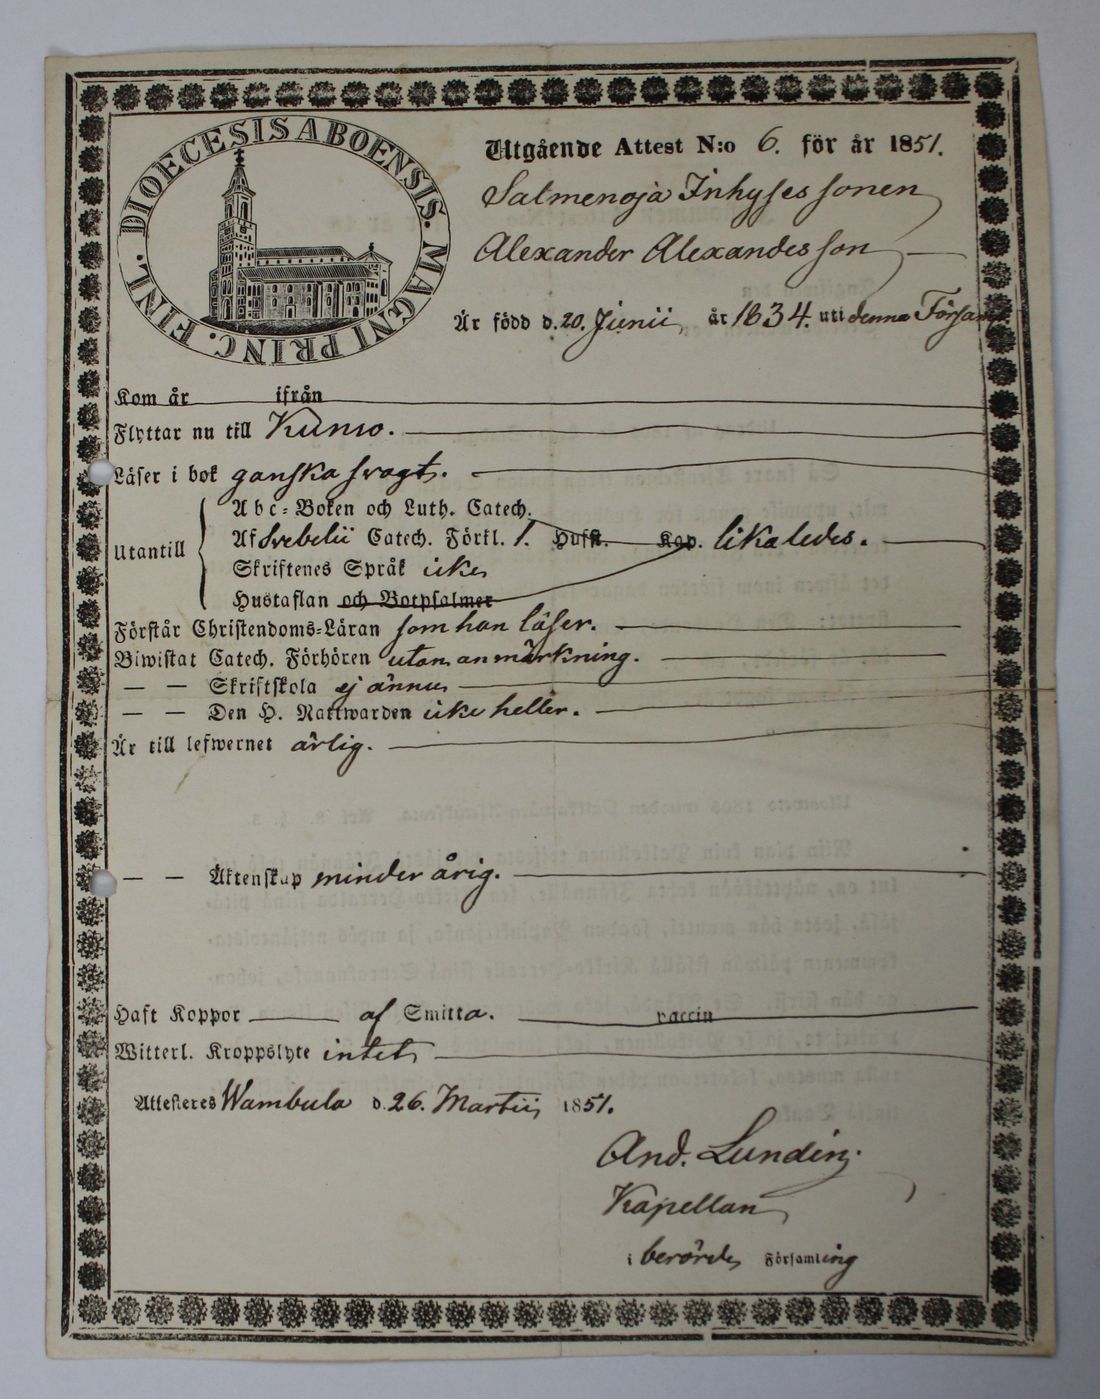 DIOECESIS ABOENSIS. MAGNI PRINC. FINL.
Utgående Attest N:o 6. för år 1851.
Salmenoja Inhyses sonen
Alexander Alexandesson
Är född d. 20. Junii år 1834. uti denna Försam
Kom år ifrån
Flyttar nu till Kumo.
Läser i bok ganska svagt.
Utantill
Abc-Boken och Luth. Catech.
Af Svebelii Catech. Förkl. 1. Hufst. Kap. likaledes.
Skriftenes Språk icke
Hustaflan och Botpsalmer
Förstår Christendoms-Läran som han läser.
Biwistat Catech. Förhören utan anmärkning.
— — Skriftskola ej ännu
— — Den H. Nattwarden icke heller.
Är till lefwernet ärlig.
— — Äktenskap minderårig.
Haft Koppor af Smitta. vaccin
Witterl. Kroppslyte intet
Attesteres Wambula d. 26. Martii 1851.
And. Lundin
Kapellan
i berörde Församling